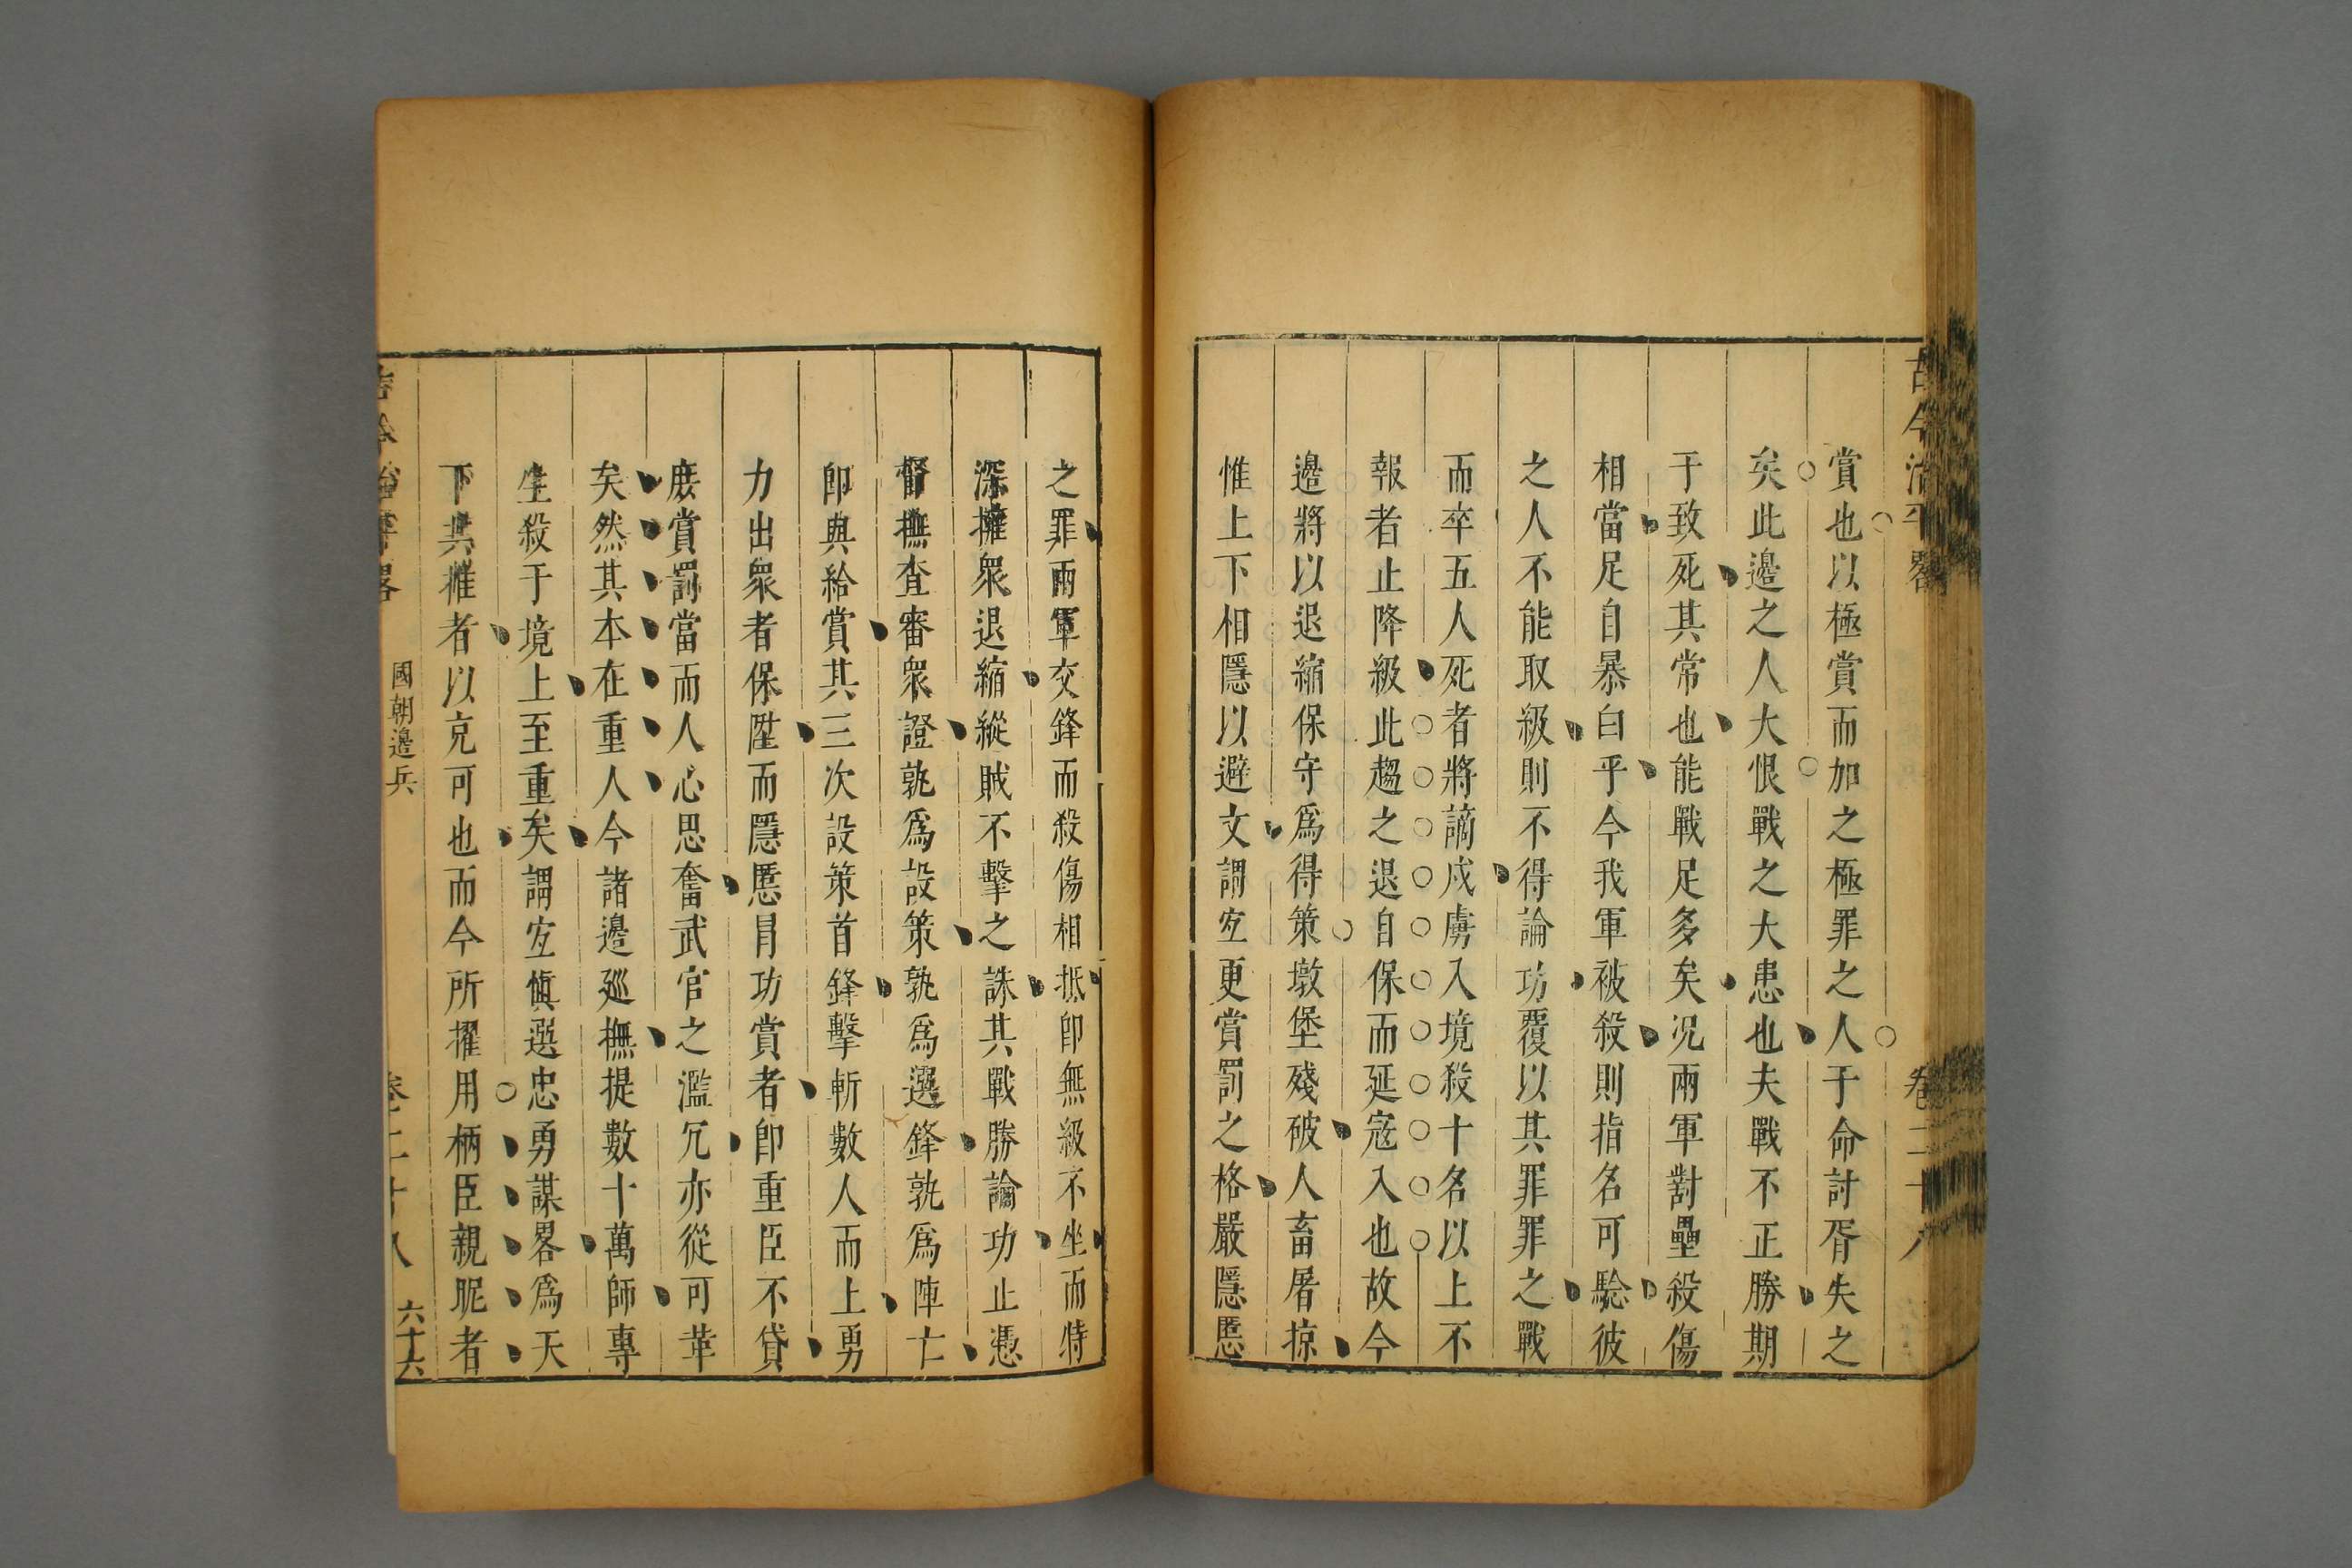 古今治平畧
卷二十八
賞也以極賞而加之極罪之人于命討胥失之
矣此邊之人大恨戰之大患也夫戰不正勝期
于致死其常也能戰足多矣况兩軍對壘殺傷
相當足自暴白乎今我軍被殺則指名可驗彼
之人不能取級則不得論功覆以其罪罪之戰
而卒五人死者將謫戍虜入境殺十名以上不
報者止降級此趨之退自保而延寇入也故今
邊將以退縮保守爲得策墩堡殘破人畜屠掠
惟上下相隱以避文謂宐更賞罰之格嚴隱慝
之罪兩軍交鋒而殺傷相抵卽無級不坐而特
深擁衆退縮縱賊不擊之誅其戰勝論功止憑
督撫查審衆證孰爲設策孰爲選鋒孰爲陣亡
卽與給賞其三次設策首鋒擊斬數人而上勇
力出衆者保陞而隱慝冒功賞者卽重臣不貸
庶賞罰當而人心思奮武官之濫冗亦從可革
矣然其本在重人今諸邊廵撫提數十萬師專
生殺于境上至重矣謂宐愼選忠勇謀畧爲天
下其推者以克可也而今所擢用柄臣親昵者
古今治平畧
國朝邊兵
卷二十八
六十六